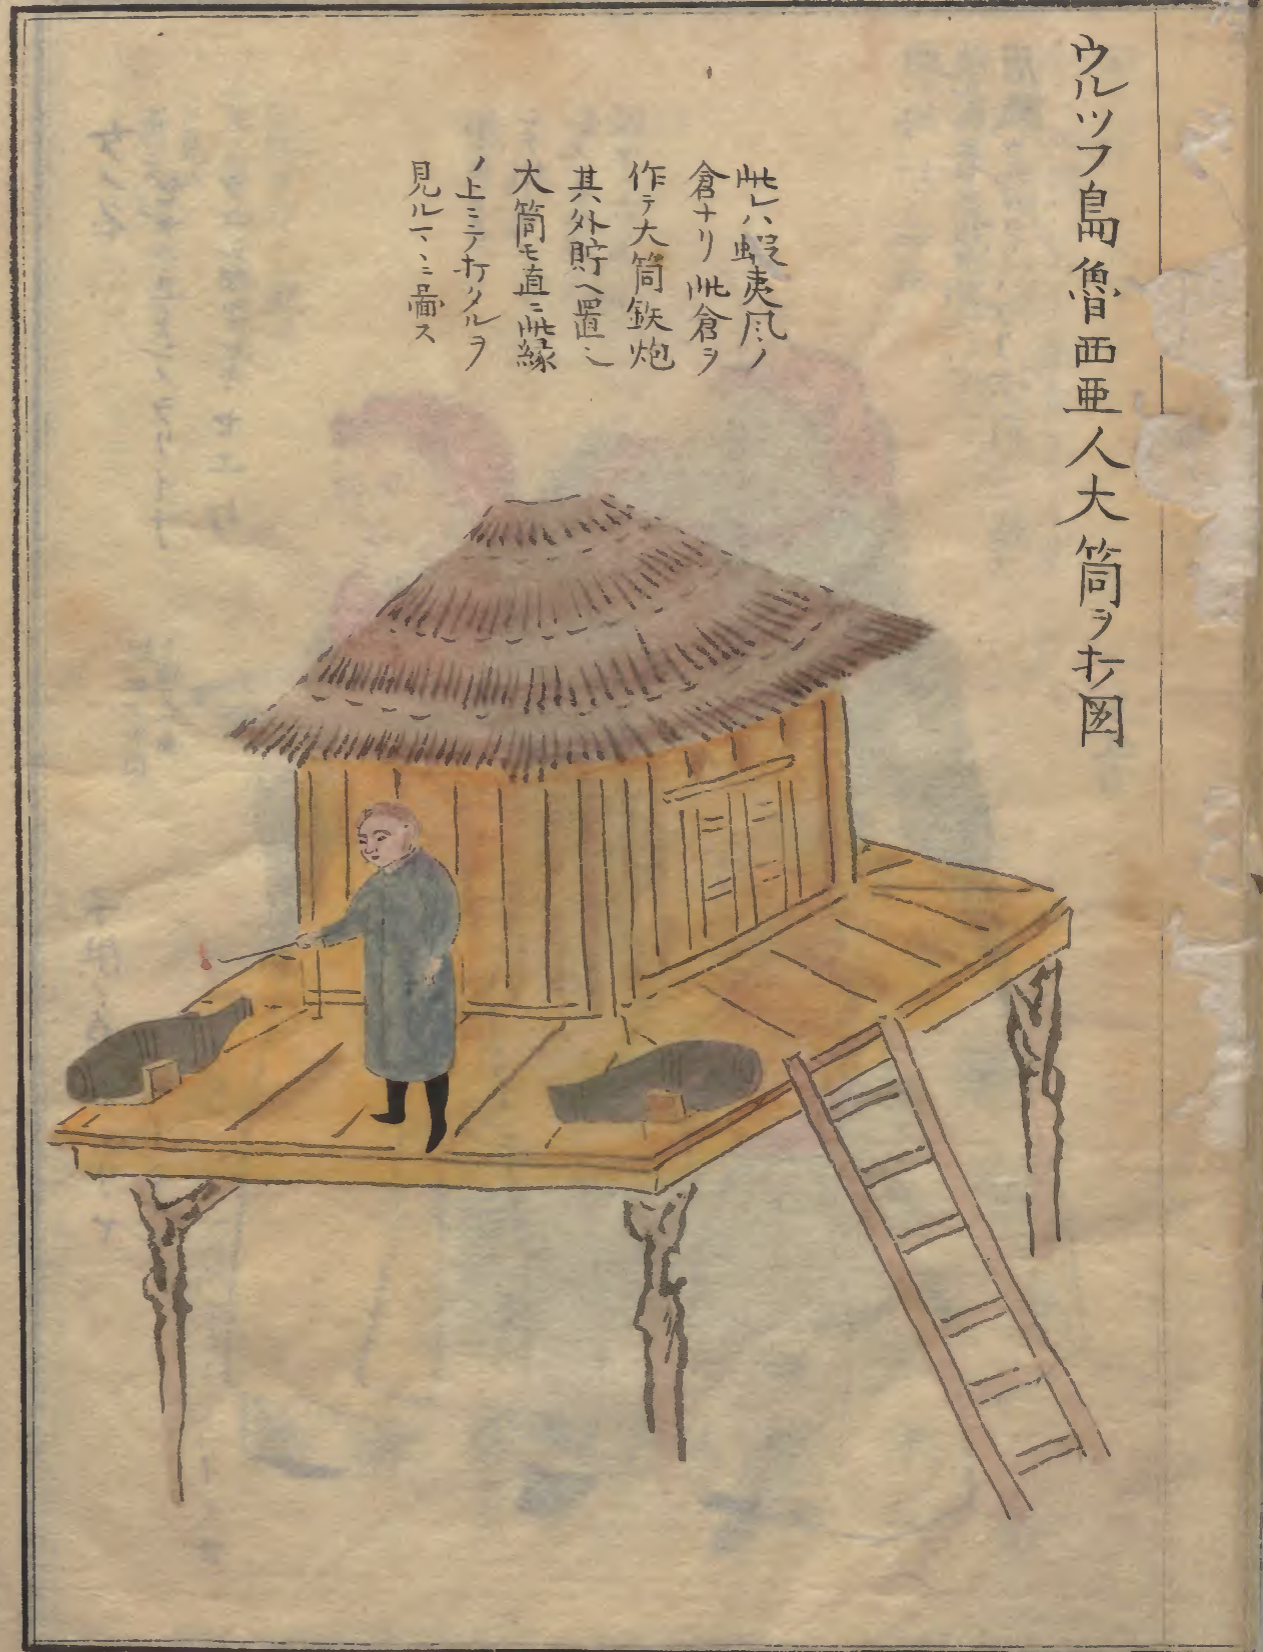 ウルツフ島魯西亜人大筒ヲ打図
此レハ蝦夷風ノ
倉ナリ此倉ヲ
作テ大筒鉄炮
其外貯ヘ置シ
大筒モ直ニ此縁
ノ上ニテ打タルヲ
見ルマヽニ畾ス